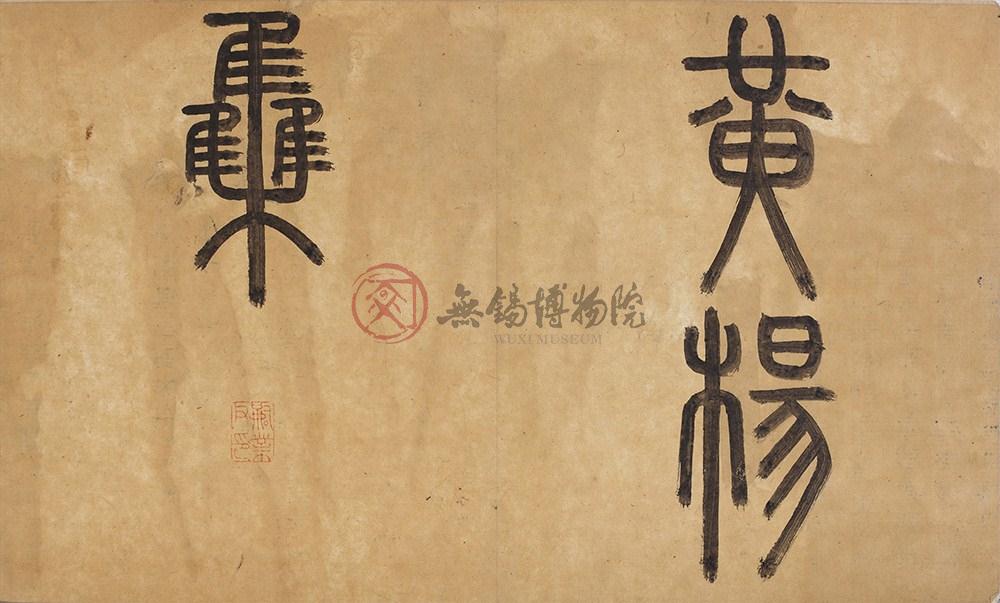 黄楊
雧
無錫博物院
WUXI MUSEUM